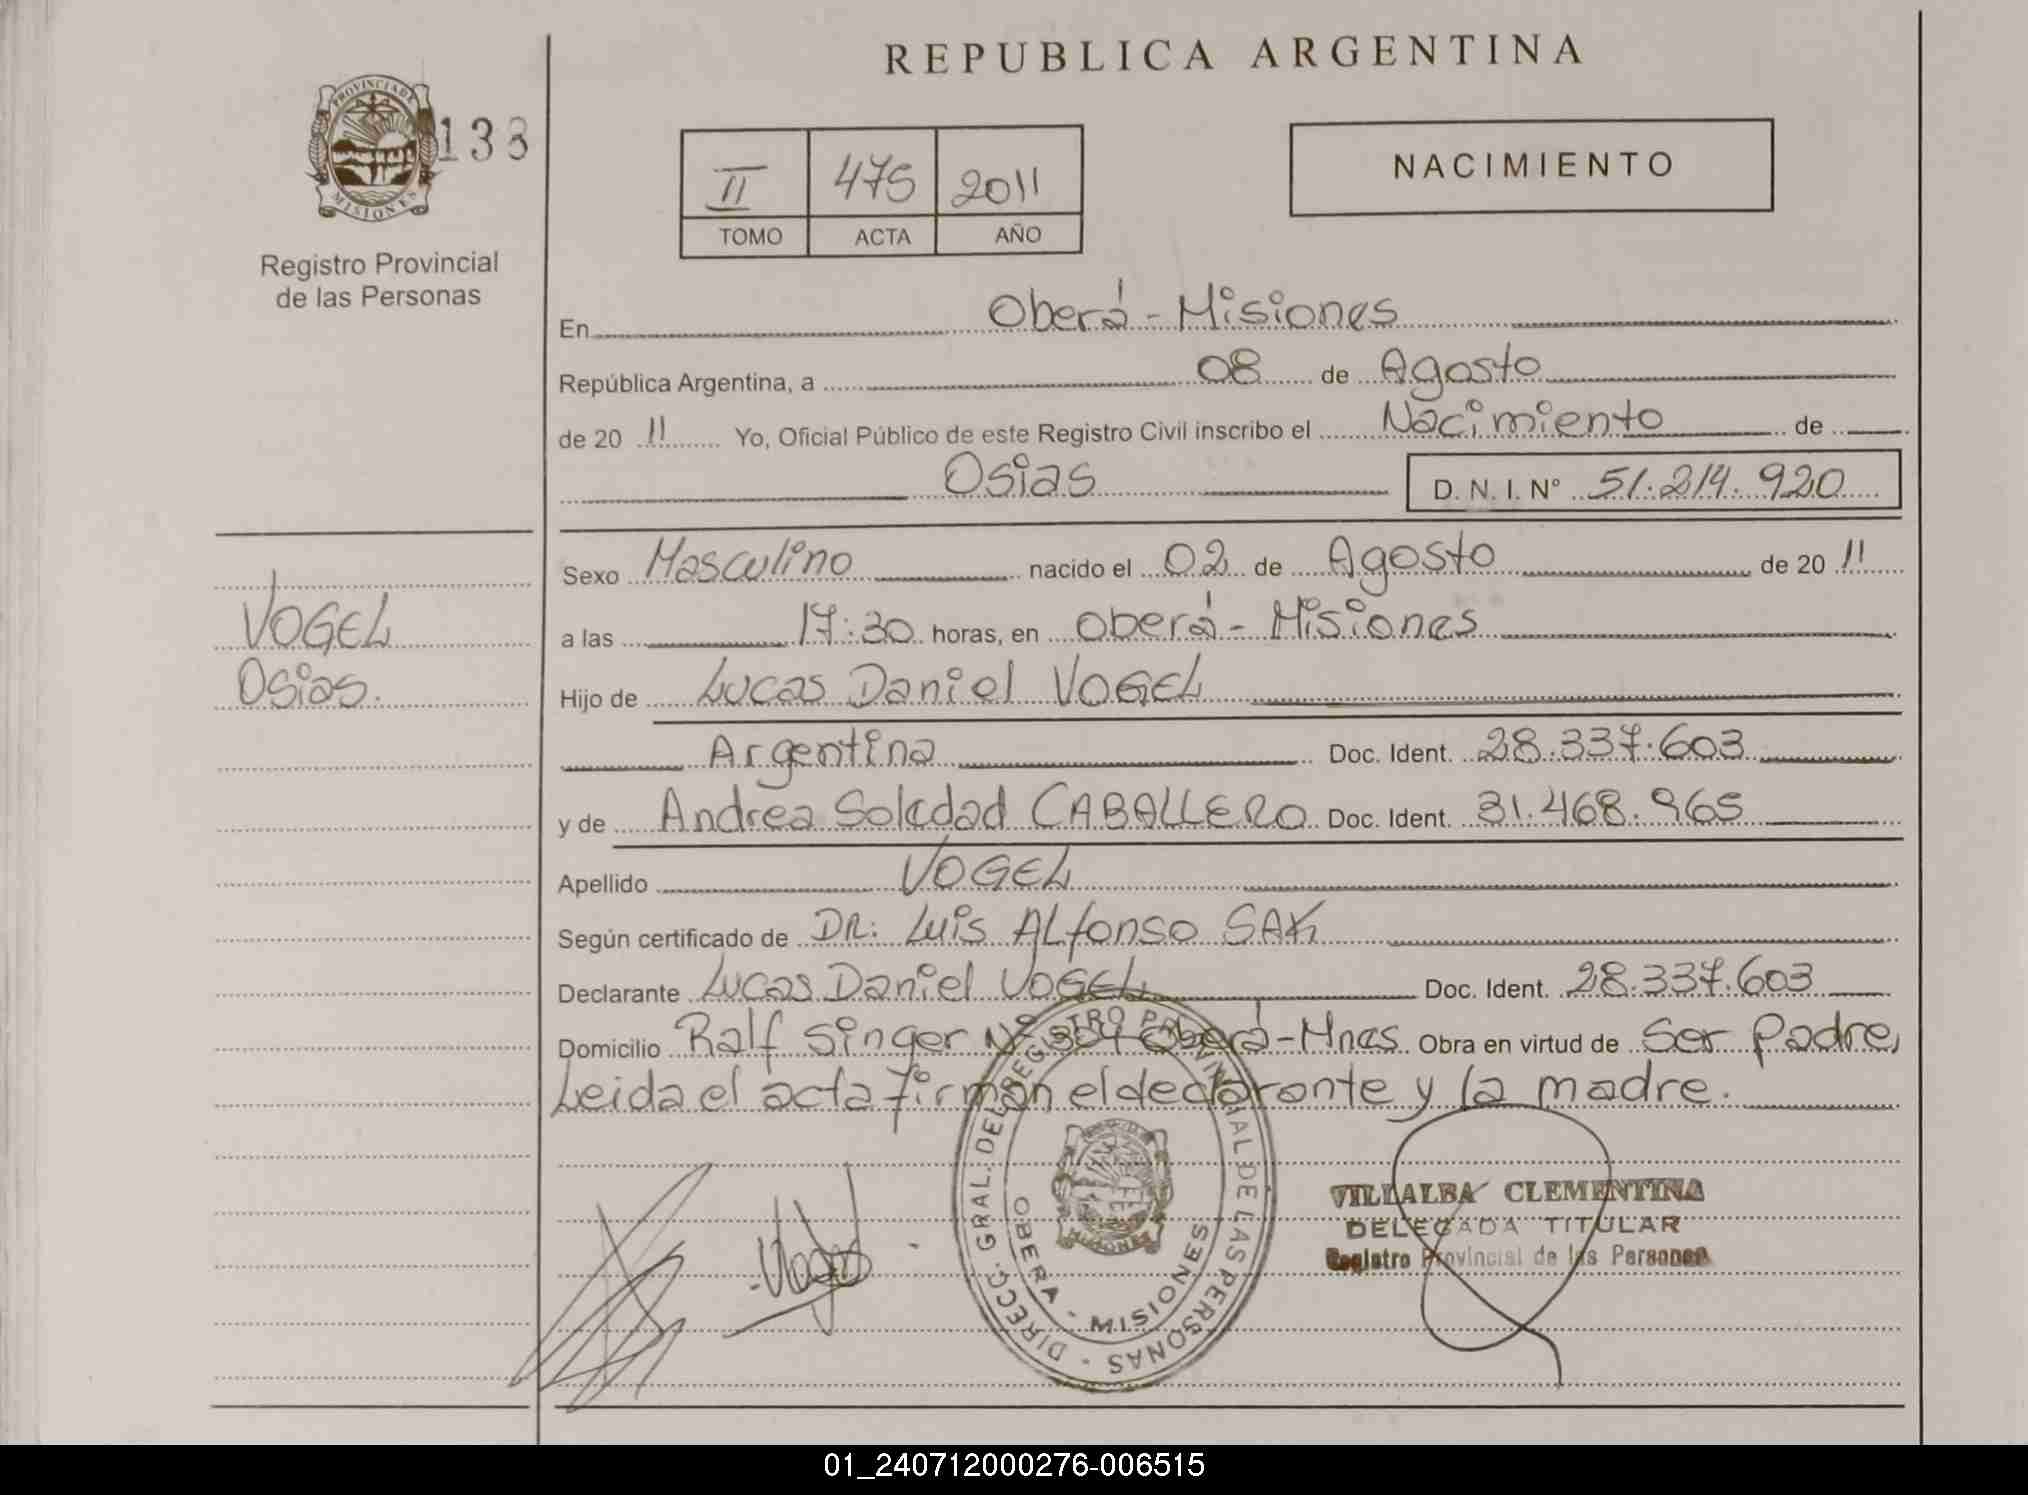 REPUBLICA ARGENTINA
PROVINCIA DE
MISIONES
133
Registro Provincial
de las Personas
II 475 2011
TOMO ACTA AÑO
NACIMIENTO
En Oberá - Misiones
República Argentina, a 08 de Agosto
de 20 11 Yo, Oficial Público de este Registro Civil inscribo el Nacimiento de
Osias D. N. I. Nº 51.214.920
Sexo Masculino nacido el 02 de Agosto de 20 11
VOGEL
Osias.
a las 17:30 horas, en Oberá - Misiones
Hijo de Lucas Daniel VOGEL
Argentina Doc. Ident. 28.337.603
y de Andrea Soledad CABALLERO Doc. Ident. 31.468.965
Apellido VOGEL
Según certificado de DR: Luis ALfonso SAK
Declarante Lucas Daniel VOGEL Doc. Ident. 28.337.603
Domicilio Ralf Singer Nº 304 Oberá - Mnes Obra en virtud de Ser Padre,
Leida el acta firman el declarante y la madre.
DIRECC. GRAL. DEL REGISTRO PROVINCIAL DE LAS PERSONAS
OBERA - MISIONES
MISIONES
Vogel
VILLALBA CLEMENTINA
DELEGADA TITULAR
Registro Provincial de las Personas
01_240712000276-006515